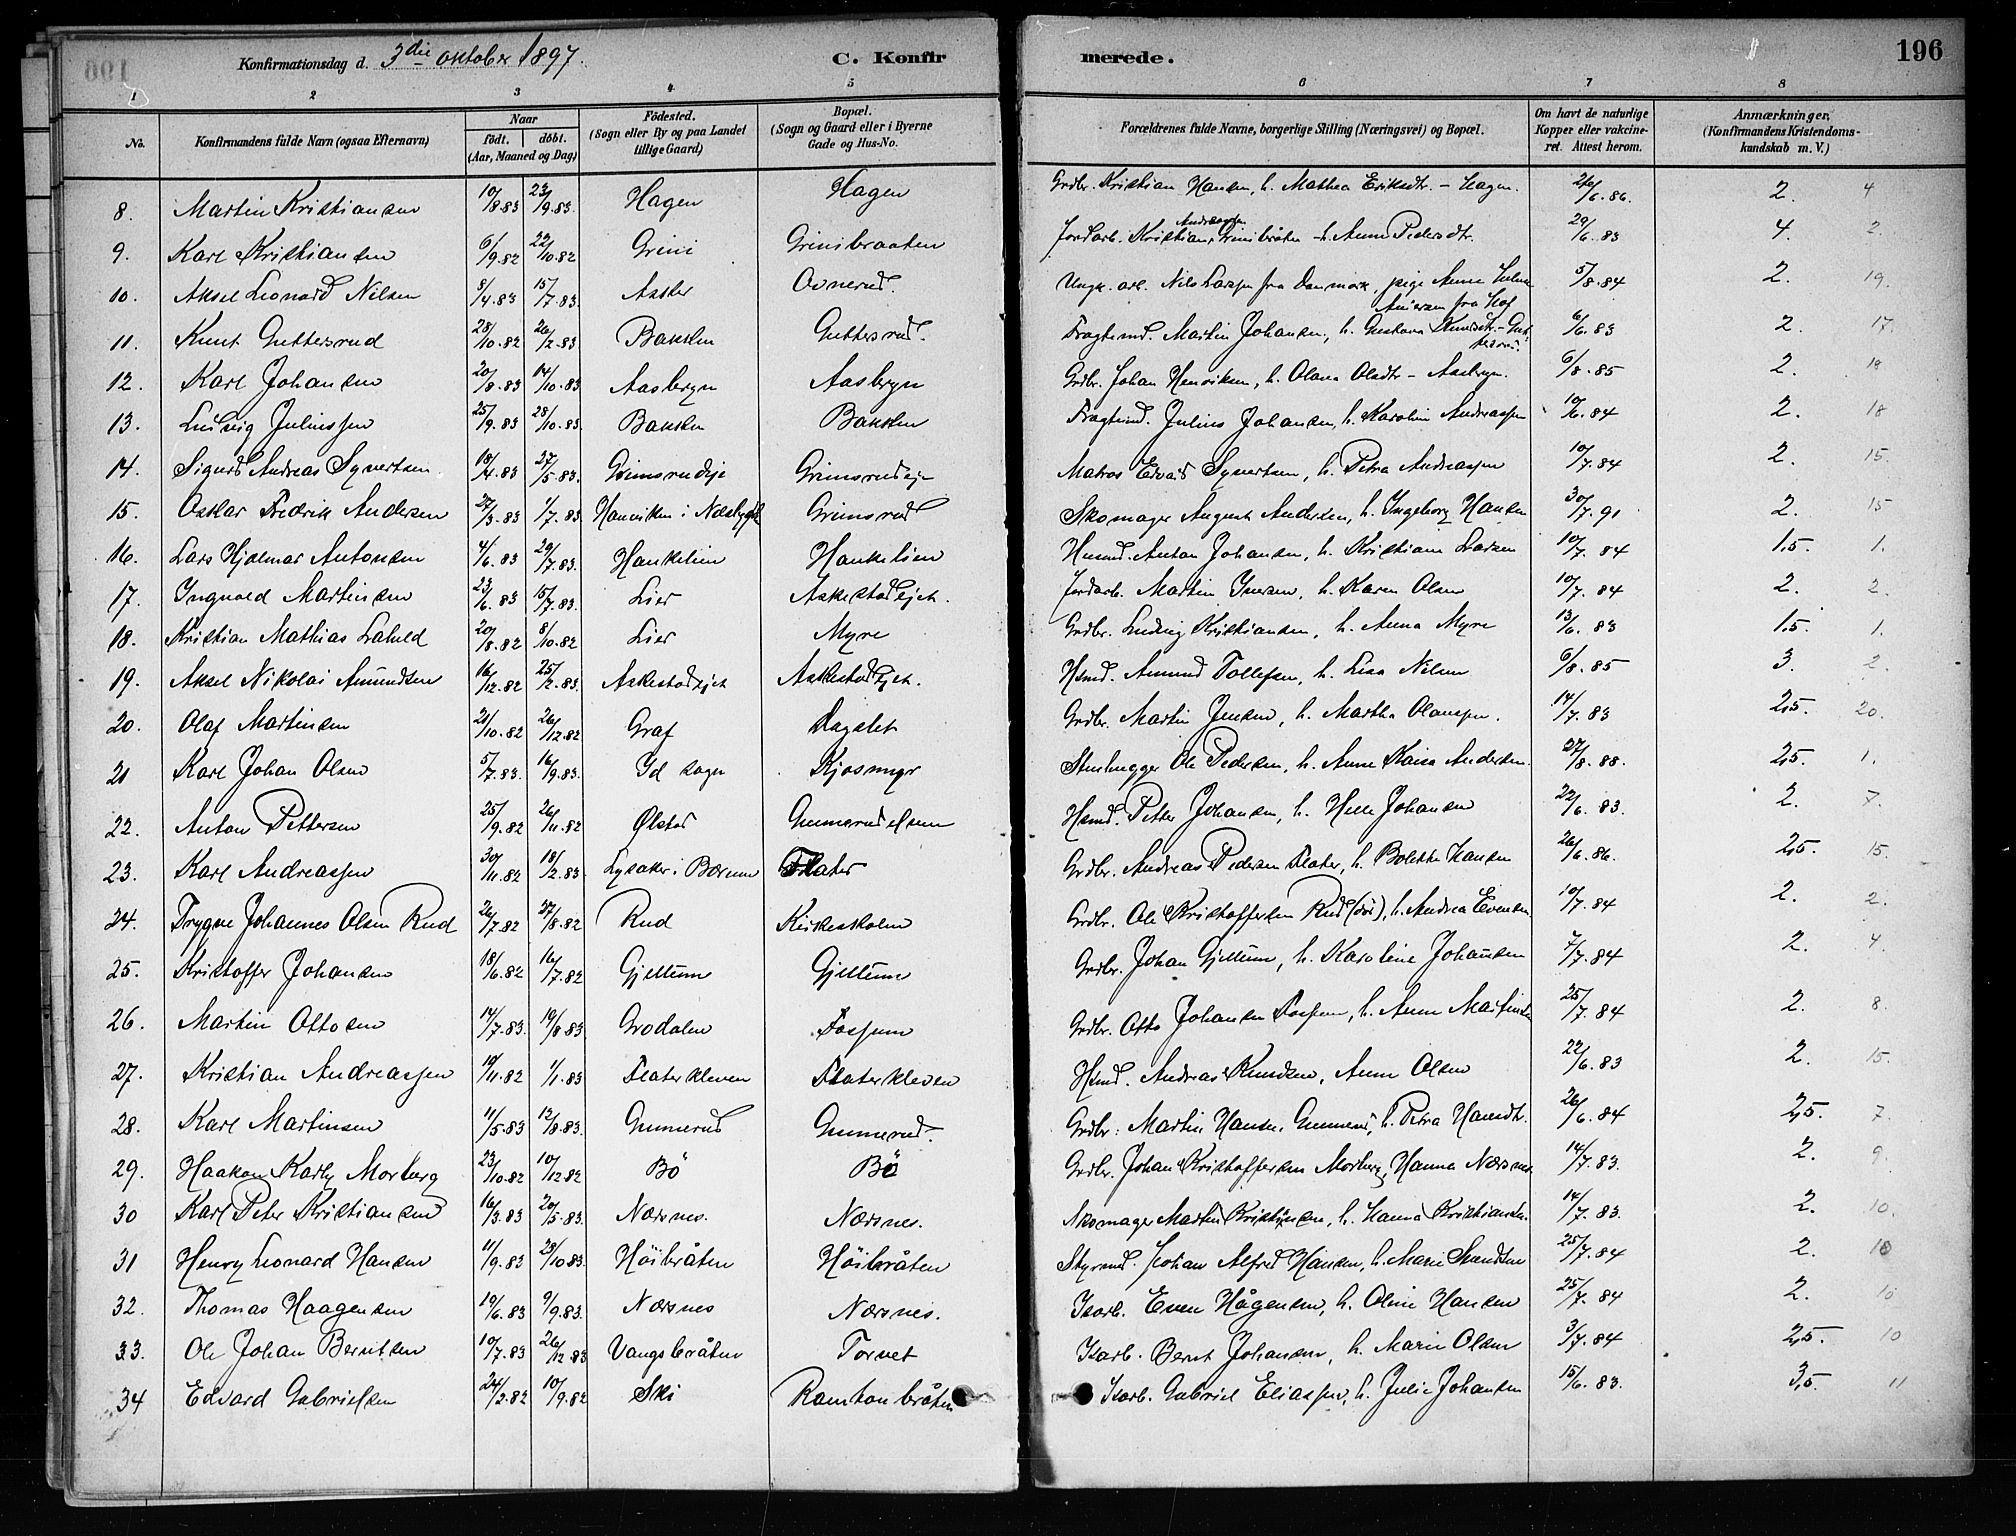 Konfirmationsdag d. 3die oktober 1897. C. Konfirmerede. 196
1 2 3 4 5 6 7 8
No. Konfirmandens fulde Navn (ogsaa Efternavn) Naar født. døbt. (Aar, Maaned og Dag) Fødested. (Sogn eller By og paa Landet tillige Gaard) Bopæl. (Sogn og Gaard eller i Byerne Gade og Hus-No. Forældrenes fulde Navne, borgerlige Stilling (Næringsvei) og Bopæl. Om havt de naturlige Kopper eller vakcineret. Attest herom. Anmærkninger. (Konfirmandens Kristendomskundskab m. V.)
8. Martin Kristiansen 10/8.83 23/9.83. Hagen Hagen Grdbr. Kristian Hansen, h. Mathea Eriksdtr. - Hagen. 26/6.86. 2. 4
9. Karl Kristiansen 6/9.82 22/10.82 Grini Grinibraaten Jordarb. Kristian Andreassen Grinibråten - h. Anne Pedersdtr. 29/6.83 4. 2.
10. Aksel Leonard Nilsen 8/4.83 15/7.83. Asker Ovnerud. Ungk. arb. Nils Larssen fra Danmark, pige Anne Andersen fra Hof 5/8.84 2. 19.
11. Knut Guttersrud 28/10.82 26/2.83 Bakken Guttersrud. Fragtemd. Martin Johansen, h. Gustava Knudsdtr. - Guttersrud. 6/6.83 2. 17.
12. Karl Johansen 20/8.83 14/10.83 Aasbergn Aasbergn Grdbr. Johan Henriksen, h. Olava Olsdtr - Aasbergn. 6/8.85 2. 18
13. Ludvig Julinssen 25/9.83 28/10.83 Bakken Bakken Fragtemd. Julius Johansen, h. Karolin Andreassen 10/6.84 2. 18
14. Sigurd Andreas Syvertsen 18/4.83 27/5.83. Grimsrudeje Grimsrudeje Matros Edvard Syvertsen, h. Petra Andreassen 10/7.84 2. 15.
15. Oskar Fredrik Andersen 27/3.83 1/7.83. Hanviken i Næsbygd. Grimsrud Skomager August Andersen, h. Ingeborg Hansen 30/7.91 2. 15
16. Lars Hjalmar Antonsen 4/6.83 29/7.83. Haukelien Haukelien Husmd. Anton Johansen, h. Kristiane Larsen 10/7.84 1.5. 1.
17. Ingvald Martinsen 23/6.83 15/7.83. Lier Askestadejet. Jordarb. Martin Iversen, h. Karen Olsen 10/7.84 2. 2.
18. Kristian Mathias 20/8.82 8/10.82 Lier Myre Grdbr. Ludvig Kristiansen, h. Anna Myre 13/6.83 1.5. 1.
19. Aksel Nikolai Amundsen 16/12.82 25/2.83. Askestadejet Askestadejet. Hsmd. Amund Tollefsen, h. Lisa Nilsen 6/8.85 3. 2.
20. Olaf Martinsen 21/10.82 26/12.82 Graf Dagslet Grdbr. Martin Jensen, h. Martha Olaussen. 14/7.83 2,5. 20.
21 Karl Johan Olsen 5/7.83. 16/9.83. Id sogn Kjosmyr Stenhugger Ole Pedersen, h. Anne Kaisa Andersen. 27/8.88. 2,5. 1.
22. Anton Pettersen 25/9.82 26/11.82 Ølstad Gunnerudelsen Hsmd. Petter Johansen, h. Helle Johansen 22/6.83. 2. 7.
23. Karl Andreassen 30/11.82 18/2.83 Lysaker i Bærum Flater Grdbr. Andreas Pedersen Flater, h. Bolette Hansen 26/6.86. 2,5. 15.
24. Trygve Johannes Olsen Rud 26/7.82 27/8.82 Rud Kirkeskolen Grdbr. Ole Kristoffersen Rud (død), h. Andrea Evensen. 10/7.84 2. 2.
25. Kristoffer Johansen 18/6.82 16/7.82 Gjellum Gjellum Grdbr. Johan Gjellum, h. Karoline Johansen 7/7.84 2. 4.
26. Martin Ottosen 14/7.83. 19/8.83 Grodalen Fossum Grdbr. Otto Johansen Fossum, h. Anne Martinsen 25/7.84 2. 8.
27. Kristian Andreassen 18/11.82 1/1.83 Flaterkleven Flaterkleven Hsmd. Andreas Knudsen, Anne Olsen 22/6.83 2. 15.
28. Karl Martinsen 11/5.83 12/8.83. Gunnerud Gunnerud. Grdbr. Martin Hansen Gunnerud, h. Petra Hansdtr. 26/6.84 2,5. 7
29. Haakon Karly Morberg 23/10.82 10/12.82 Bö Bö Grdbr. Johan Kristoffersen Morberg, Hanna Nærsnes. 14/7.83. 2. 9.
30 Karl Peter Kristiansen 16/3.83 20/5.83. Nærsnes. Nærsnes. Skomager Martin Kristiansen, h. Hanna Kristiansen. 14/7.83. 2. 10.
31 Henry Leonard Hansen 11/9.83 23/10.83. Höibråten Höibråten Styrmd. Johan Alfred Hansen, h. Marie Knudsen 25/7.84 2. 10
32. Thomas Haagensen 19/6.83 9/9.83. Nærsnes Nærsnes. Isarb. Even Hågensen, h. Oline Hansen 25/7.84 2. 10
33. Ole Johan Berntsen 10/7.83 26/12.83 Vangsbråten Torvet Isarb. Bernt Johansen, h. Marie Olsen 3/7.84 2,5. 10
34 Edvard Gabrielsen 24/2.82 10/9.82 Ski Ramtonbråten Isarb. Gabriel Eliassen, h. Julie Johansen 15/6.83. 3,5. 11